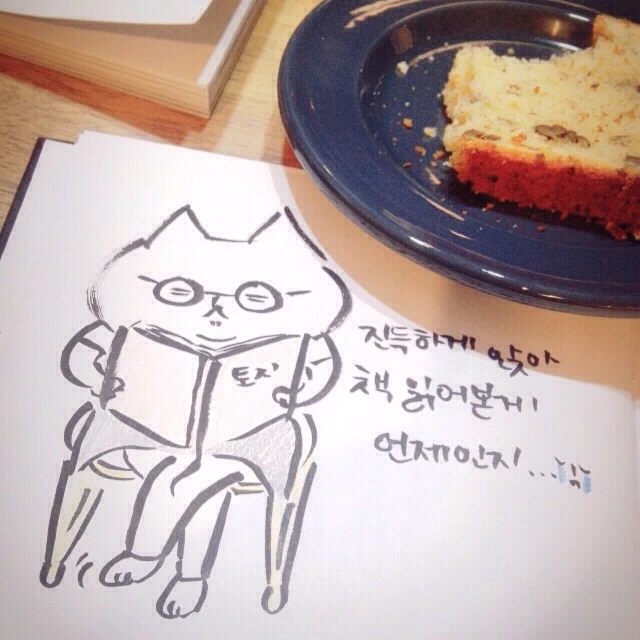 토지
진득하게 앉아
책 읽어본게
언제인지...